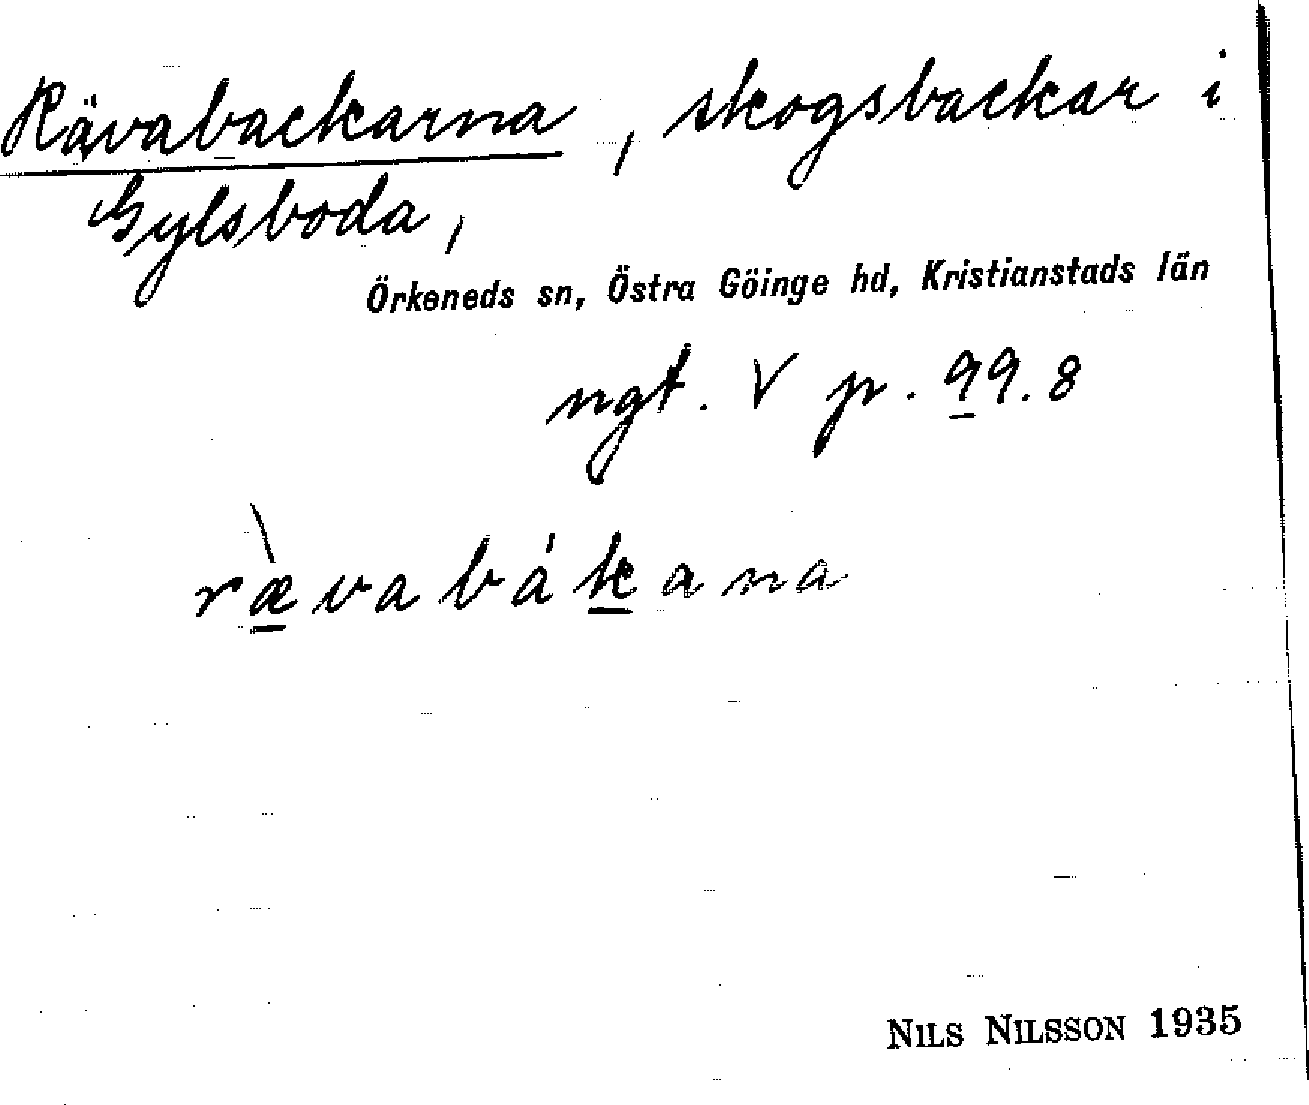 Rävabackarna, skogsbackar i
Gylsboda,
Örkeneds sn, Östra Göinge hd, Kristianstads län
ngt. V p. 99.8
ræ̀vabákana
NILS NILSSON 1935